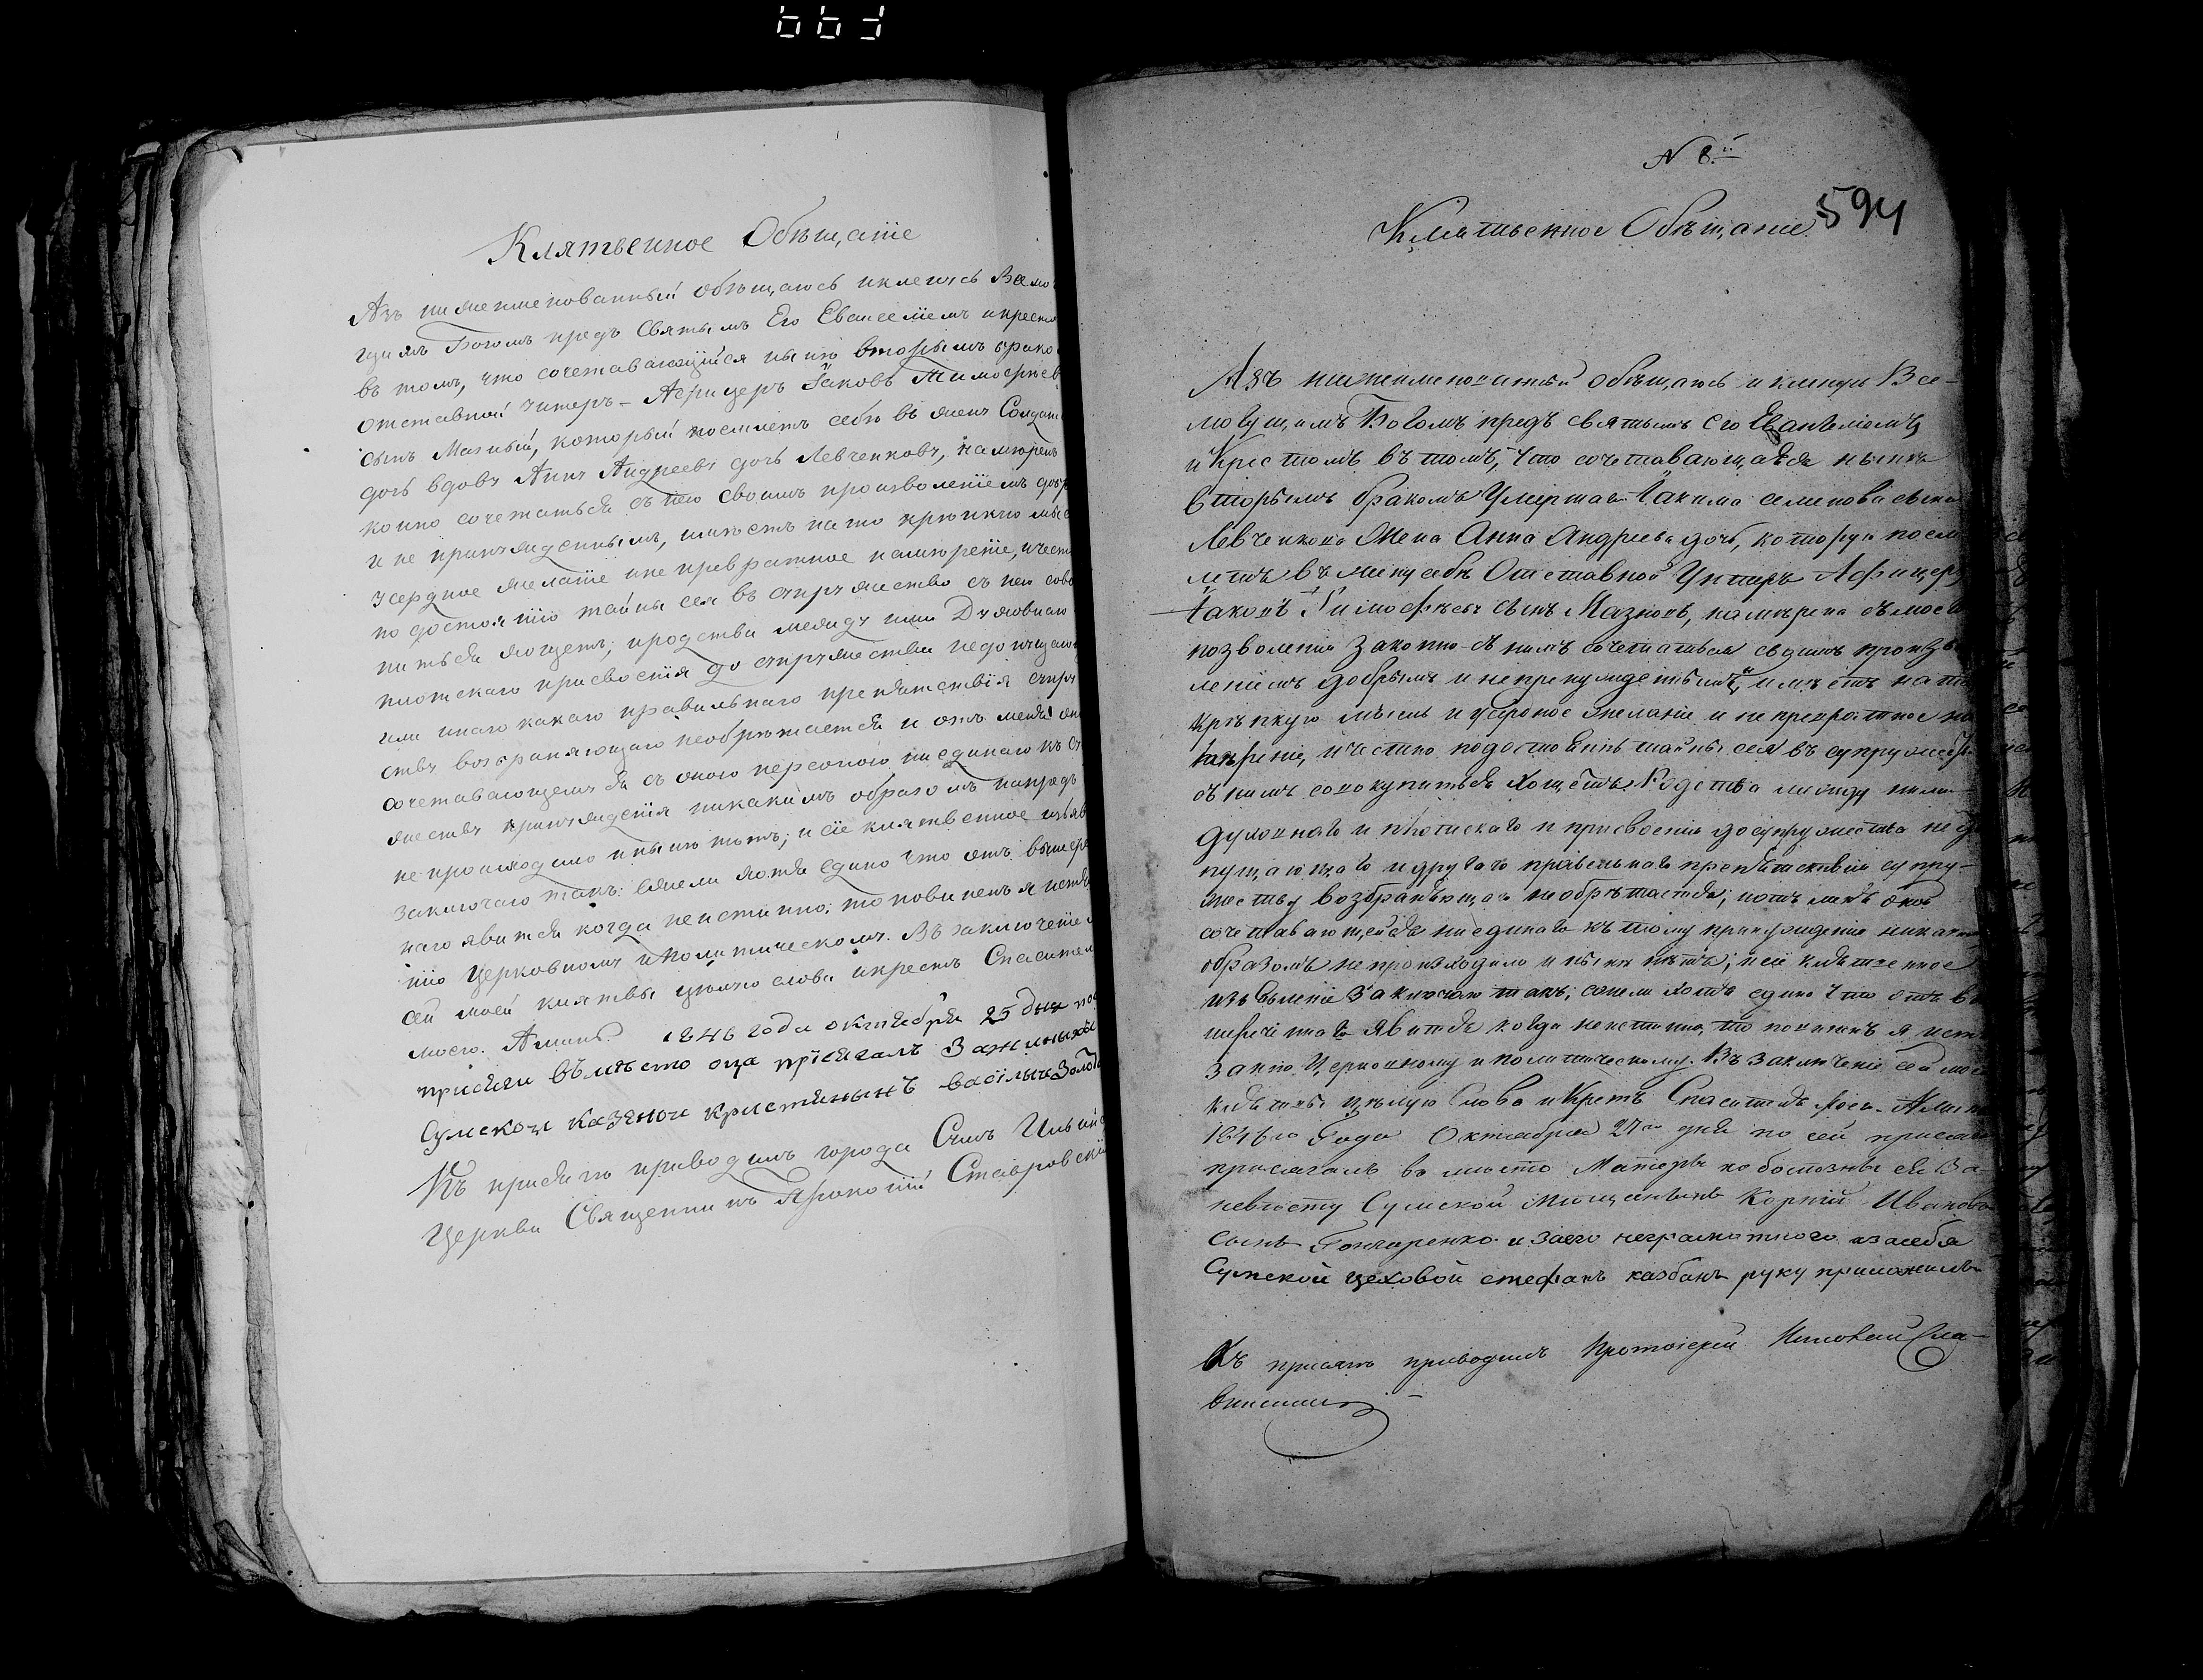 Клятвенное Обѣщанїе
Азъ нижеименованный обѣщаюсь и кленусь Всемо
щимъ Богомъ предъ Святымъ Его Евангелїемъ и кресто
въ томъ, что сочетавающїйся нынѣ вторымъ брако
отставной Унтеръ-Афицеръ Іаковъ Тимофѣев
сынъ Мазный, который поемлетъ себѣ въ жену Солдат
дочь вдову Анну Андрееву дочь Левченкову, намѣренъ
конно сочетаться съ нею своимъ произволенїемъ добр
и не принужденнымъ, имѣетъ на то крѣпкую мыс
усердное желанїе и не превратное намѣренїе, и чест
по достоянїю тайны сея въ супружество съ нею сово
питься хощетъ; сродства между ими Духовнаго
плотскаго присвоенїя до супружества недопущаю
или инаго какаго правильнаго препятствїя супру
ству возбраняющаго необрѣтается и отъ меня
сочетавающемуся съ оною персоною ни единаго къ с
жеству принужденїя никакимъ образомъ напредъ
не происходило и нынѣ нѣтъ; и сїе клятвенное изъяв
заключаю такъ: ежели хотя едино что отъ вышере
наго явится когда неистинно, то повиненъ я истяз
нїю Церковному и Политическому. Въ заключенїе
сей моей клятвы цѣлую слова и крестъ Спасителя
моего. Аминь. 1846 года октября 25 дня по
присяги вѣместо оца прїсягалъ
Сумскои казенои кристянынъ васілые
Къ присягѣ приводилъ города Сумъ Ильин
Церкви Священникъ Прокопїй Ставровскі
N 8й
594
Клятвенное Обѣщанїе
Азъ нижеименованный обѣщаюсь и кленусь Все-
могущимъ Богомъ предъ святымъ его Евангелїемъ
и Крестомъ въ томъ, что сочетавающаяся нынѣ
вторымъ бракомъ Умершаго Іакима Семенова сына
Левченкова жена Анна Андреева дочь, которую поем
летъ въ жену себѣ Отставной Унтеръ Афицеръ
Іаковъ Тимофѣевъ сынъ Мазновъ, намѣрена съ моего
позволенїя законно съ нимъ сочетаться своимъ произво
ленїемъ добрымъ и непренужденнымъ, имѣетъ на то
крѣпкую мысль и усердное желанїе и не превратное на
мѣренїе, и честно подостоянїю тайны сея въ супружест
съ нимъ совокупиться хощетъ. Родства между ними
духовнаго и плотскаго и присвоенїя до супружества недо
пущающаго и другаго правильнаго препятствїя супру-
жеству возбраняющаго необрѣтается; и отъ меня оной
сочетавающейся ниединаго къ тому принужденїя никаким
образомъ не происходило и нынѣ нѣтъ; и сїе клятвенное
изъявленїе заключаю такъ; ежели хотя едино что отъ вы
шереченнаго явится когда неистинно, то повиненъ я истя
занїю Церковному и политическому. Въ заключенїе сей моей
клятвы цѣлую Слова и Крестъ Спасителя моего. Аминь
1846го Года Октября 27го дня по сей присягѣ
присягалъ въ мѣсто Матери по болѣзни ея За
невѣсту Сумской Мѣщанинъ Корнїй Ивановъ
Сынъ Гончаренко и заего неграмотного изасебя
Сумской цеховой стефанъ казбанъ руку приложилъ
Къ присягѣ приводилъ Протоїерей